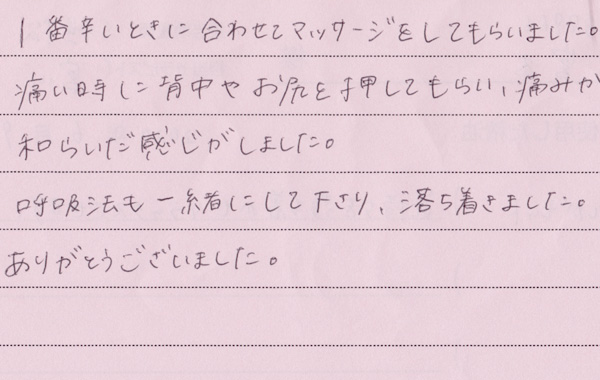 1番辛いときに合わせてマッサージをしてもらいました。
痛い時に背中やお尻を押してもらい、痛みが
和らいだ感じがしました。
呼吸法も一緒にして下さり、落ち着きました。
ありがとうございました。